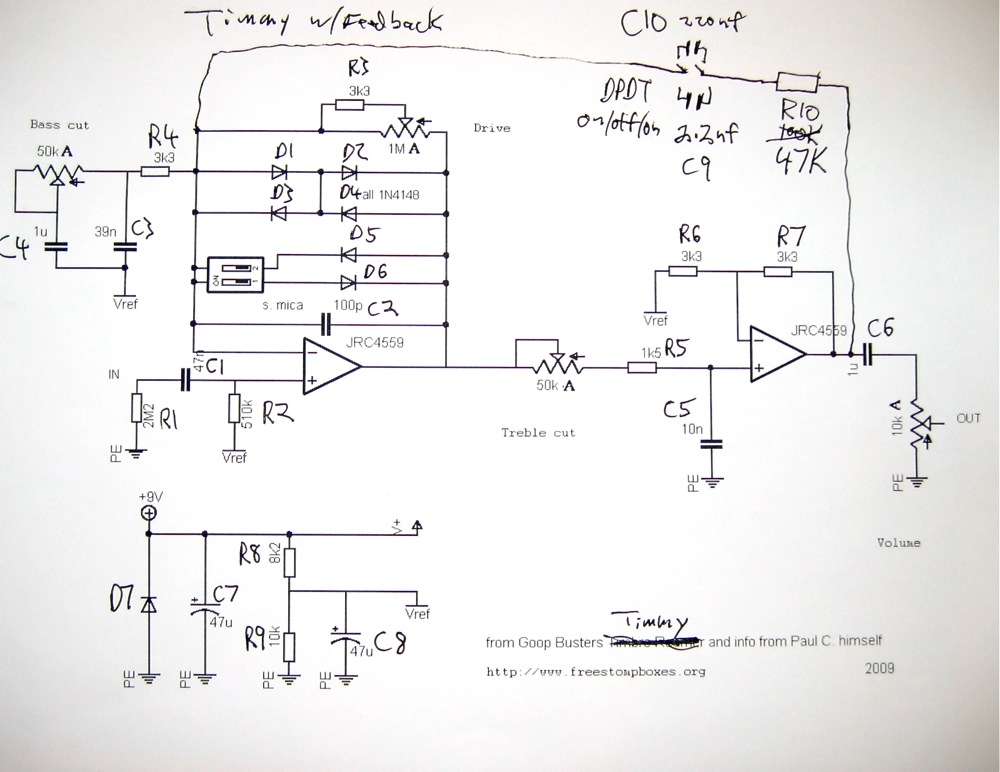 Timmy w/Feedback
C10 220nf
R3
3k3
DPDT
on/off/on
2.2nf
C9
R10
100K
47K
Bass cut
50k A
R4
3k3
Drive
1M A
D1
D2
D3
D4 all 1N4148
C4
1u
39n
C3
Vref
D5
ON
2
1
D6
s. mica
100p C2
R6
3k3
R7
3k3
Vref
JRC4559
JRC4559
C6
1u
IN
47n
C1
2M2
R1
510k
R2
PE
Vref
50k A
1k5 R5
C5
10n
PE
Treble cut
10k A
OUT
PE
Volume
+9V
V+
R8
8k2
D7
C7
47u
Vref
R9
10k
47u C8
PE
PE
PE
PE
Timmy
from Goop Busters and info from Paul C. himself
http://www.freestompboxes.org
2009